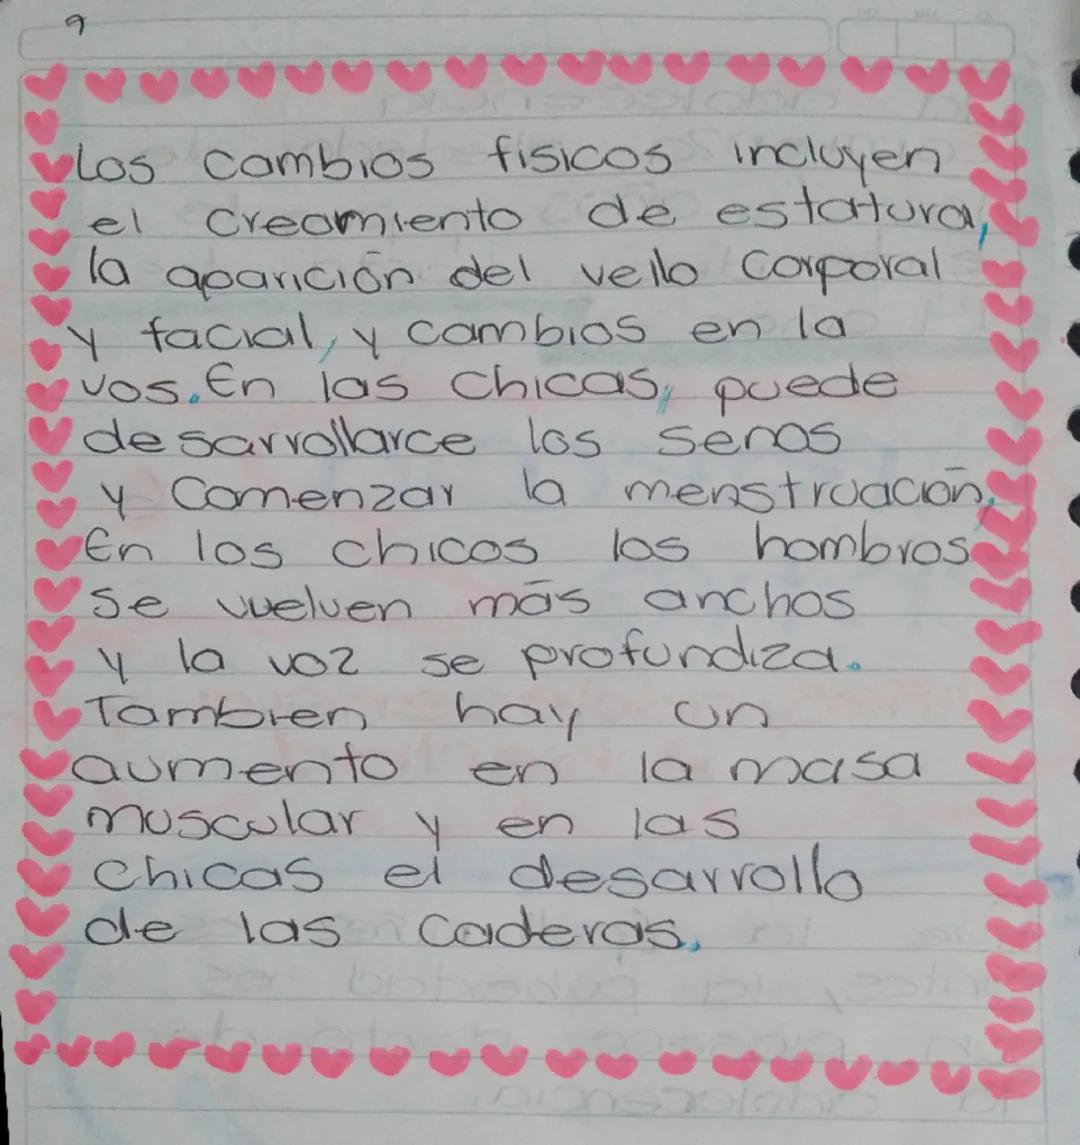 9
Los cambios fisicos incluyen
el creamiento de estatura,
la aparición del vello corporal
y facial, y cambios en la
vos. En las chicas, puede
desarrollarce los senos
y comenzar la menstruación,
En los chicos los hombros
se vuelven más anchos
y la voz se profundiza.
Tambien hay un
aumento en la masa
muscular y en las
chicas el desarrollo
de las caderas.